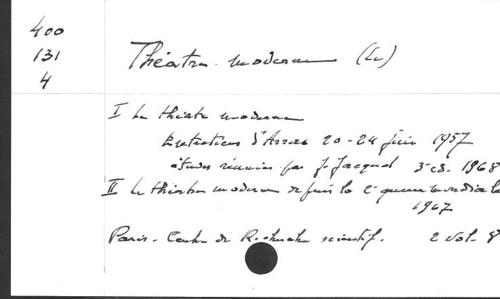 400
131
4
Théatre moderne (Le)
I Le théatre moderne
Entretiens d'Arras 20-24 juin 1957
études réunies par J. Jacquot 3e éd. 1968
II Le théatre moderne depuis la 2e guerre mondiale
1967
Paris. Centre de Recherche scientif. 2 vol. 8